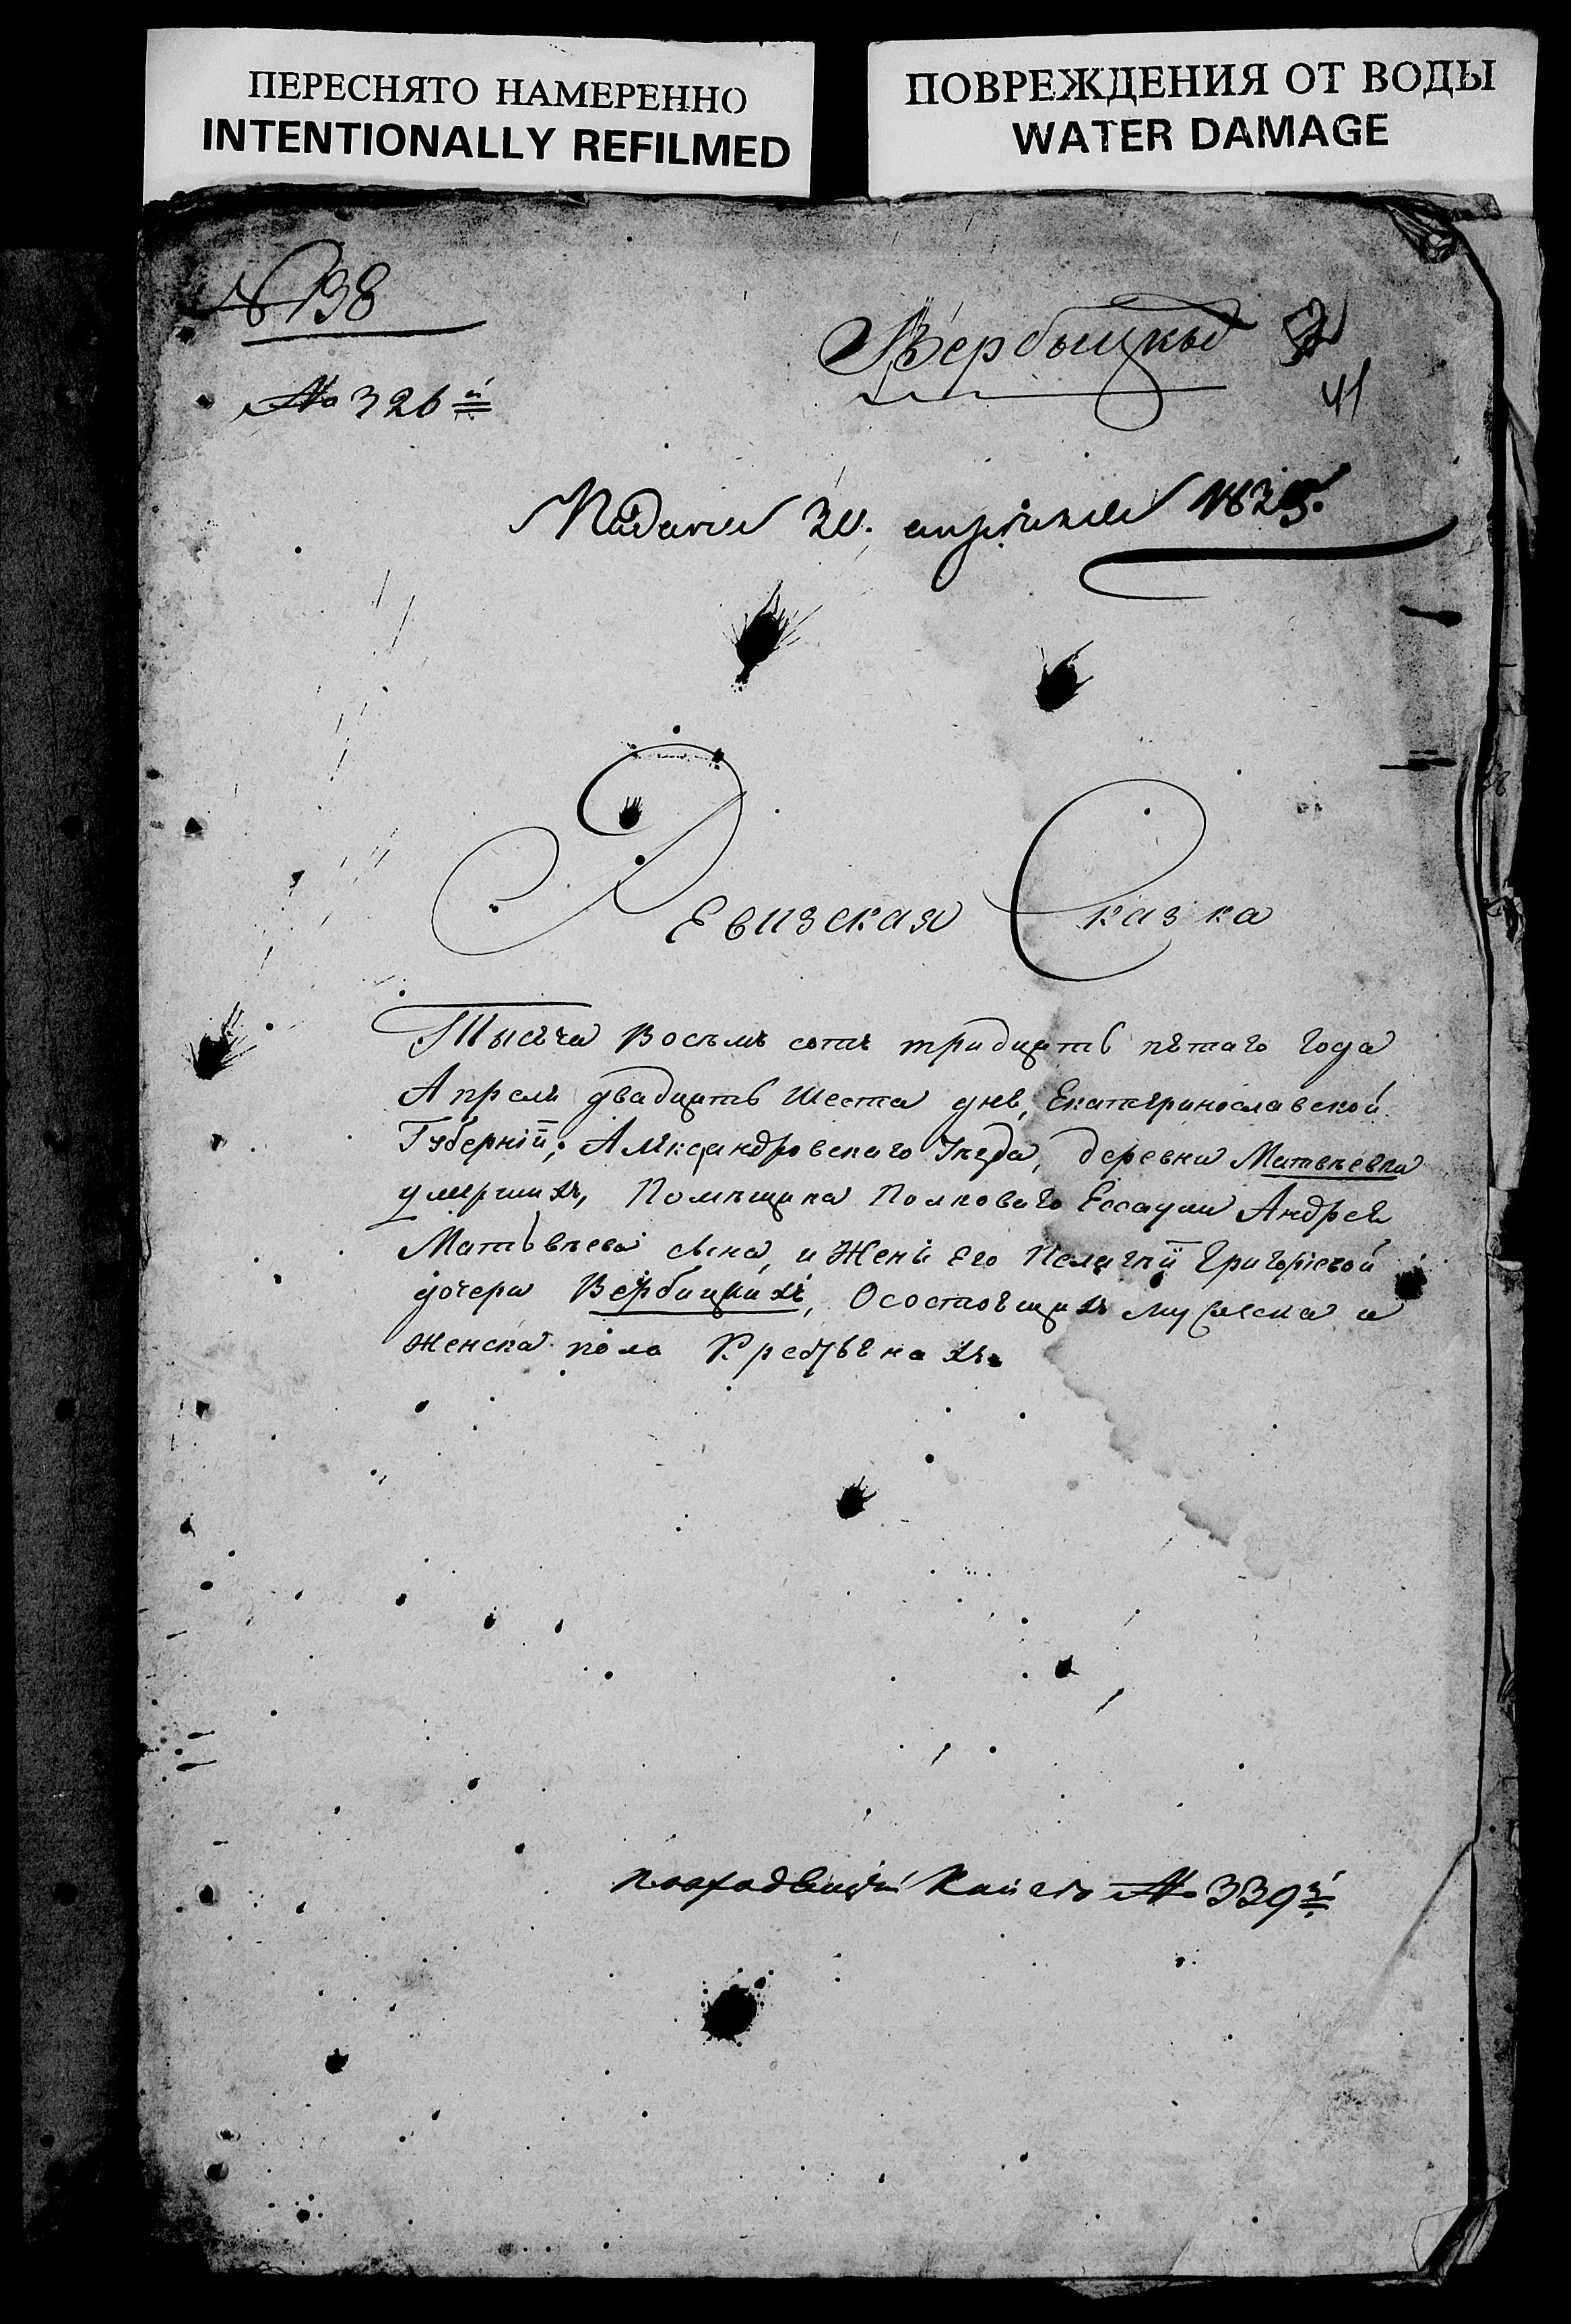 ПЕРЕСНЯТО НАМЕРЕННО
INTENTIONALLY REFILMED
ПОВРЕЖДЕНИЯ ОТ ВОДЫ
WATER DAMAGE
№ 138
Вербыцкыъ
41
№ 326й
Подана 30. апреля 1835.
Ревизская Сказка
Тысеча Восемъ сотъ тридцать пѣтаго года
Апреля двадцать шеста дне, Екатеринославской
Губерніи, Александровскаго Уѣзда, деревни Матвѣевки
умершихъ, Помѣщика Полковаго Ессаула Андрея
Матьвѣева сына, и Жены Его Пелагѣи Григорїевой
дочера Вербицкихъ, Осостоящихъ мужеска и
женска пола Крестьянахъ.
по алфавитной Книге № 339й